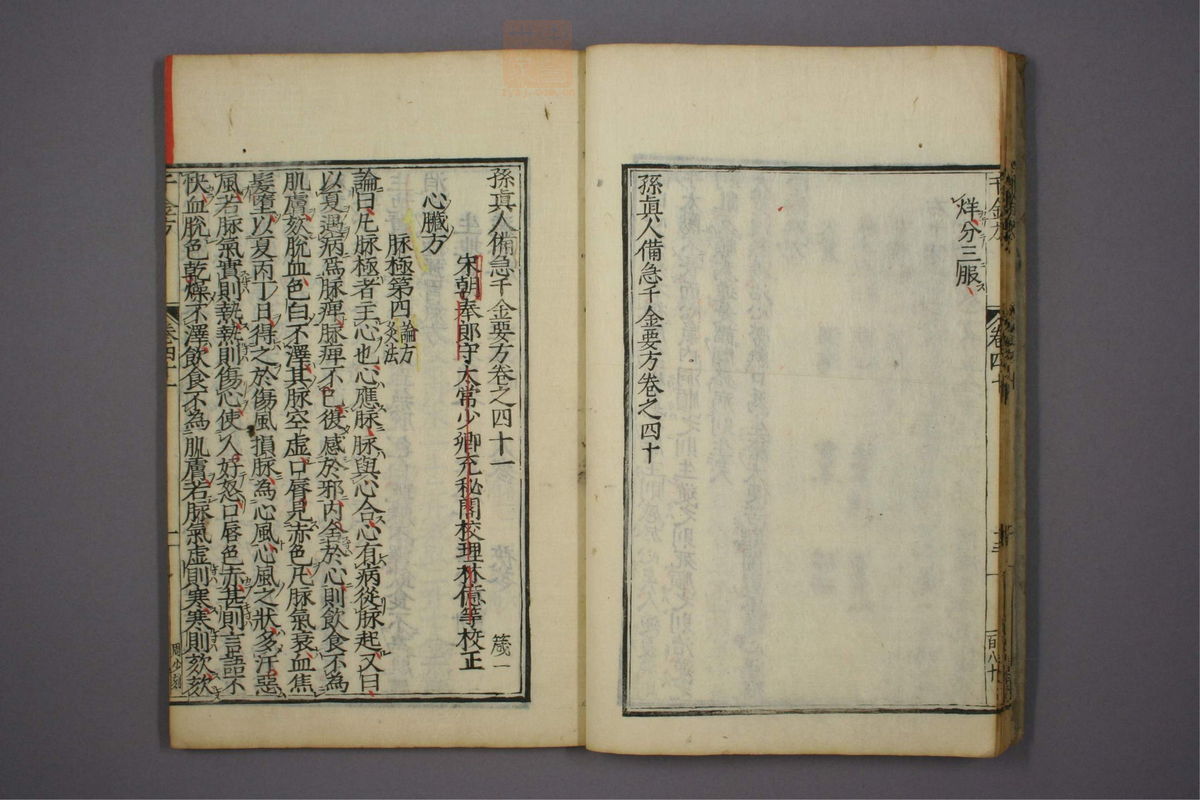 千金方
卷四十
百八十
烊分三服
孫眞人備急千金要方卷之四十
孫眞人備急千金要方卷之四十一
箴一
宋朝奉郎守太常少卿充秘閣校理林億等校正
心臟方
脉極第四論方灸法
論曰凡脉極者主心也心應脉脉與心合心有病從脉起又曰
以夏遇病爲脉痺脉痺不已復感於邪内舍於心則飲食不為
肌膚欬脫血色白不澤其脉空虚口唇見赤色凡脉氣衰血焦
髪墮以夏丙丁日得之於傷風損脉為心風心風之狀多汗惡
風若脉氣實則熱熱則傷心使人好怒口唇色赤甚則言語不
快血脫色乾燥不澤飲食不為肌膚若脉氣虚則寒寒則欬欬
千金方
卷四十一
一